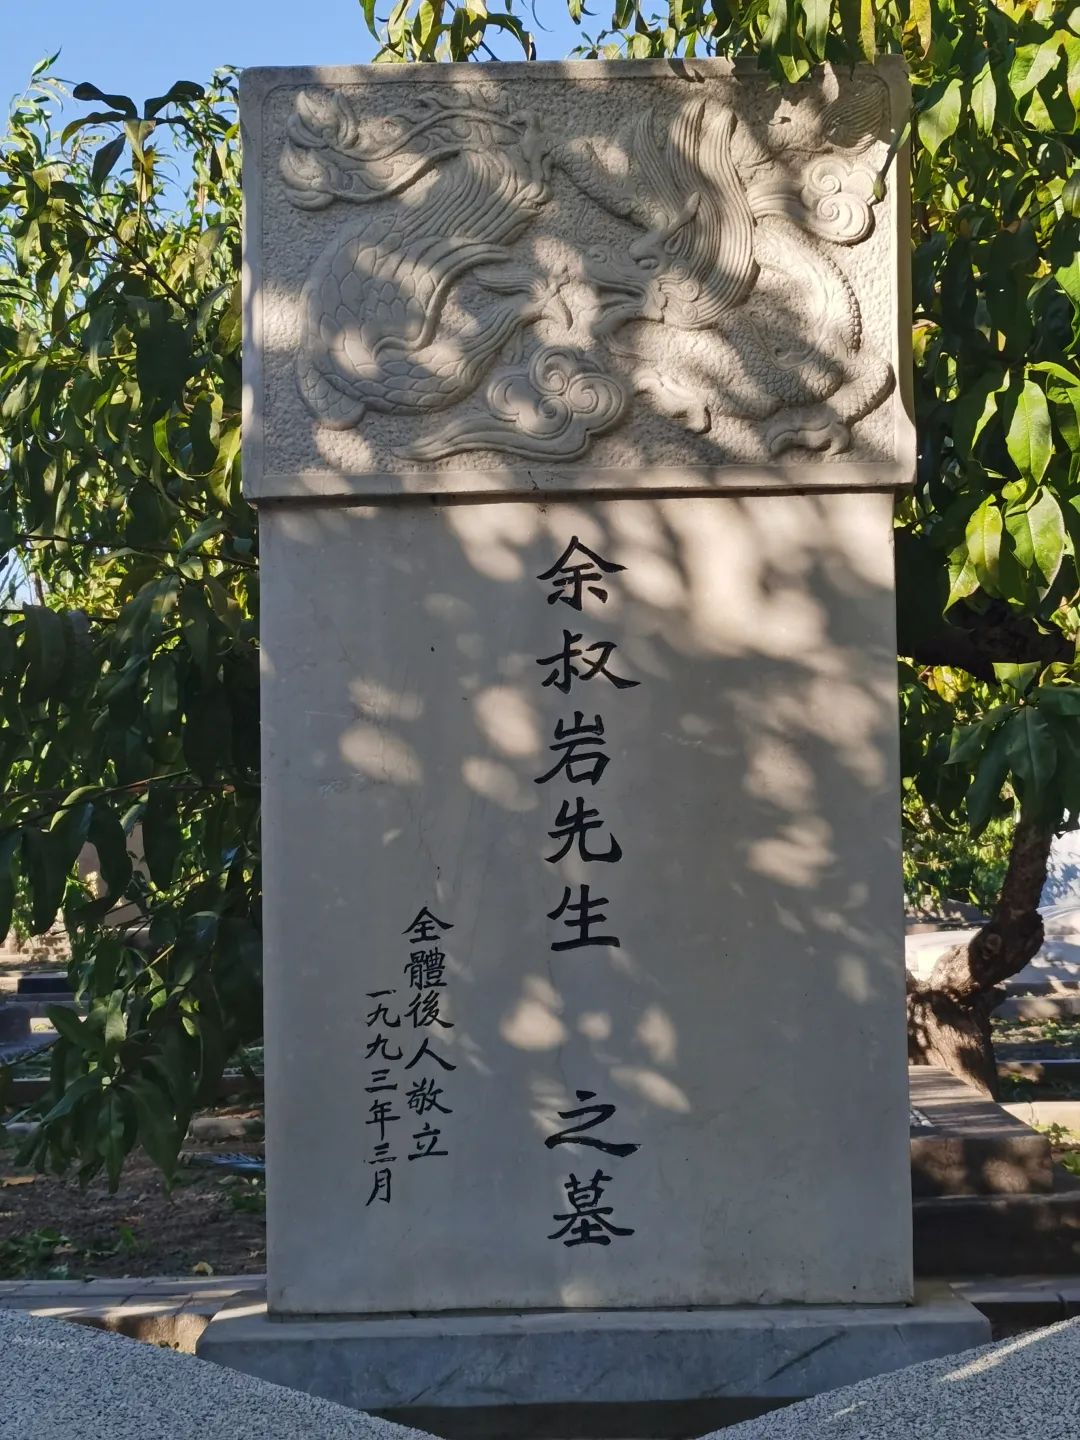 余叔岩先生之墓
全體後人敬立
一九九三年三月